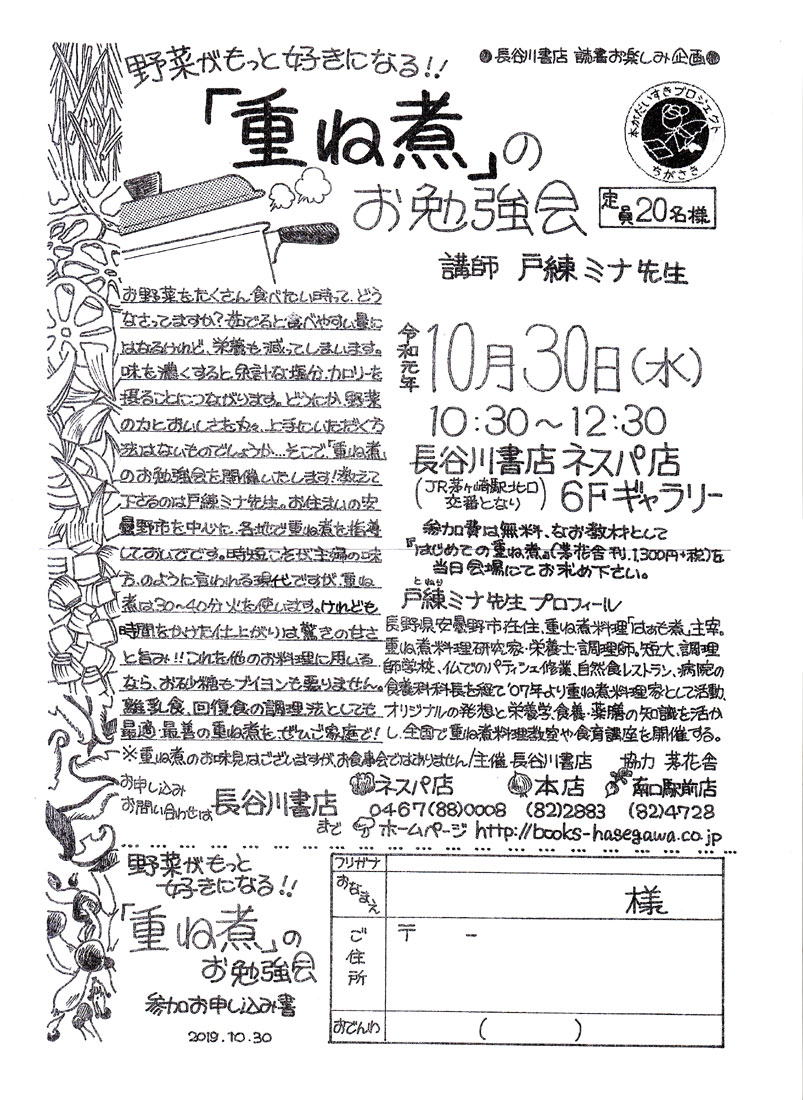 野菜がもっと好きになる!!
●長谷川書店 読書お楽しみ企画●
「重ね煮」の
お勉強会
本がだいすきプロジェクト
ちがさき
定員20名様
講師 戸練ミナ先生
お野菜をたくさん食べたい時って、どう
なさってますか?茹でると食べやすい量に
はなるけれど、栄養も減ってしまいます。
味を濃くすると、余計な塩分、カロリーを
摂ることにつながります。どうにか、野菜
の力とおいしさを丸々、上手にいただく方
法はないものでしょうか…そこで「重ね煮」
のお勉強会を開催いたします!教えて
下さるのは戸練ミナ先生。お住まいの安
曇野市を中心に、各地で重ね煮を指導
しておいでです。時短こそが主婦の味
方、のように言われる現代ですが、重ね
煮は30〜40分火を使います。けれども
時間をかけた仕上がりは驚きの甘さ
と旨み!!これを他のお料理に用いる
なら、お砂糖もブイヨンも要りません。
離乳食、回復食の調理法としても
最適・最善の重ね煮を、ぜひご家庭で!
令和元年
10月30日(水)
10:30〜12:30
長谷川書店ネスパ店
(JR茅ヶ崎駅北口
交番となり)
6Fギャラリー
参加費は無料、なお教材として
『はじめての重ね煮』(茅花舎刊、1,300円+税)を
当日会場にてお求め下さい。
とねり
戸練ミナ先生 プロフィール
長野県安曇野市在住、重ね煮料理「はぁも煮」主宰。
重ね煮料理研究家・栄養士・調理師。短大、調理
師学校、仏でのパティシェ修業、自然食レストラン、病院の
食養科科長を経て'07年より重ね煮料理家として活動、
オリジナルの発想と栄養学、食養・薬膳の知識を活か
し、全国で重ね煮料理教室や食育講座を開催する。
※重ね煮のお味見はございますが、お食事会ではありません/主催 長谷川書店 協力 茅花舎
お申し込み
お問い合わせは
長谷川書店
まで
ネスパ店 本店 南口駅前店
0467(88)0008 (82)2883 (82)4728
ホームページ http://books-hasegawa.co.jp
野菜がもっと
好きになる!!
「重ね煮」の
お勉強会
参加お申し込み書
2019.10.30
フリガナ
おなまえ
様
ご住所
〒 -
おでんわ
( )